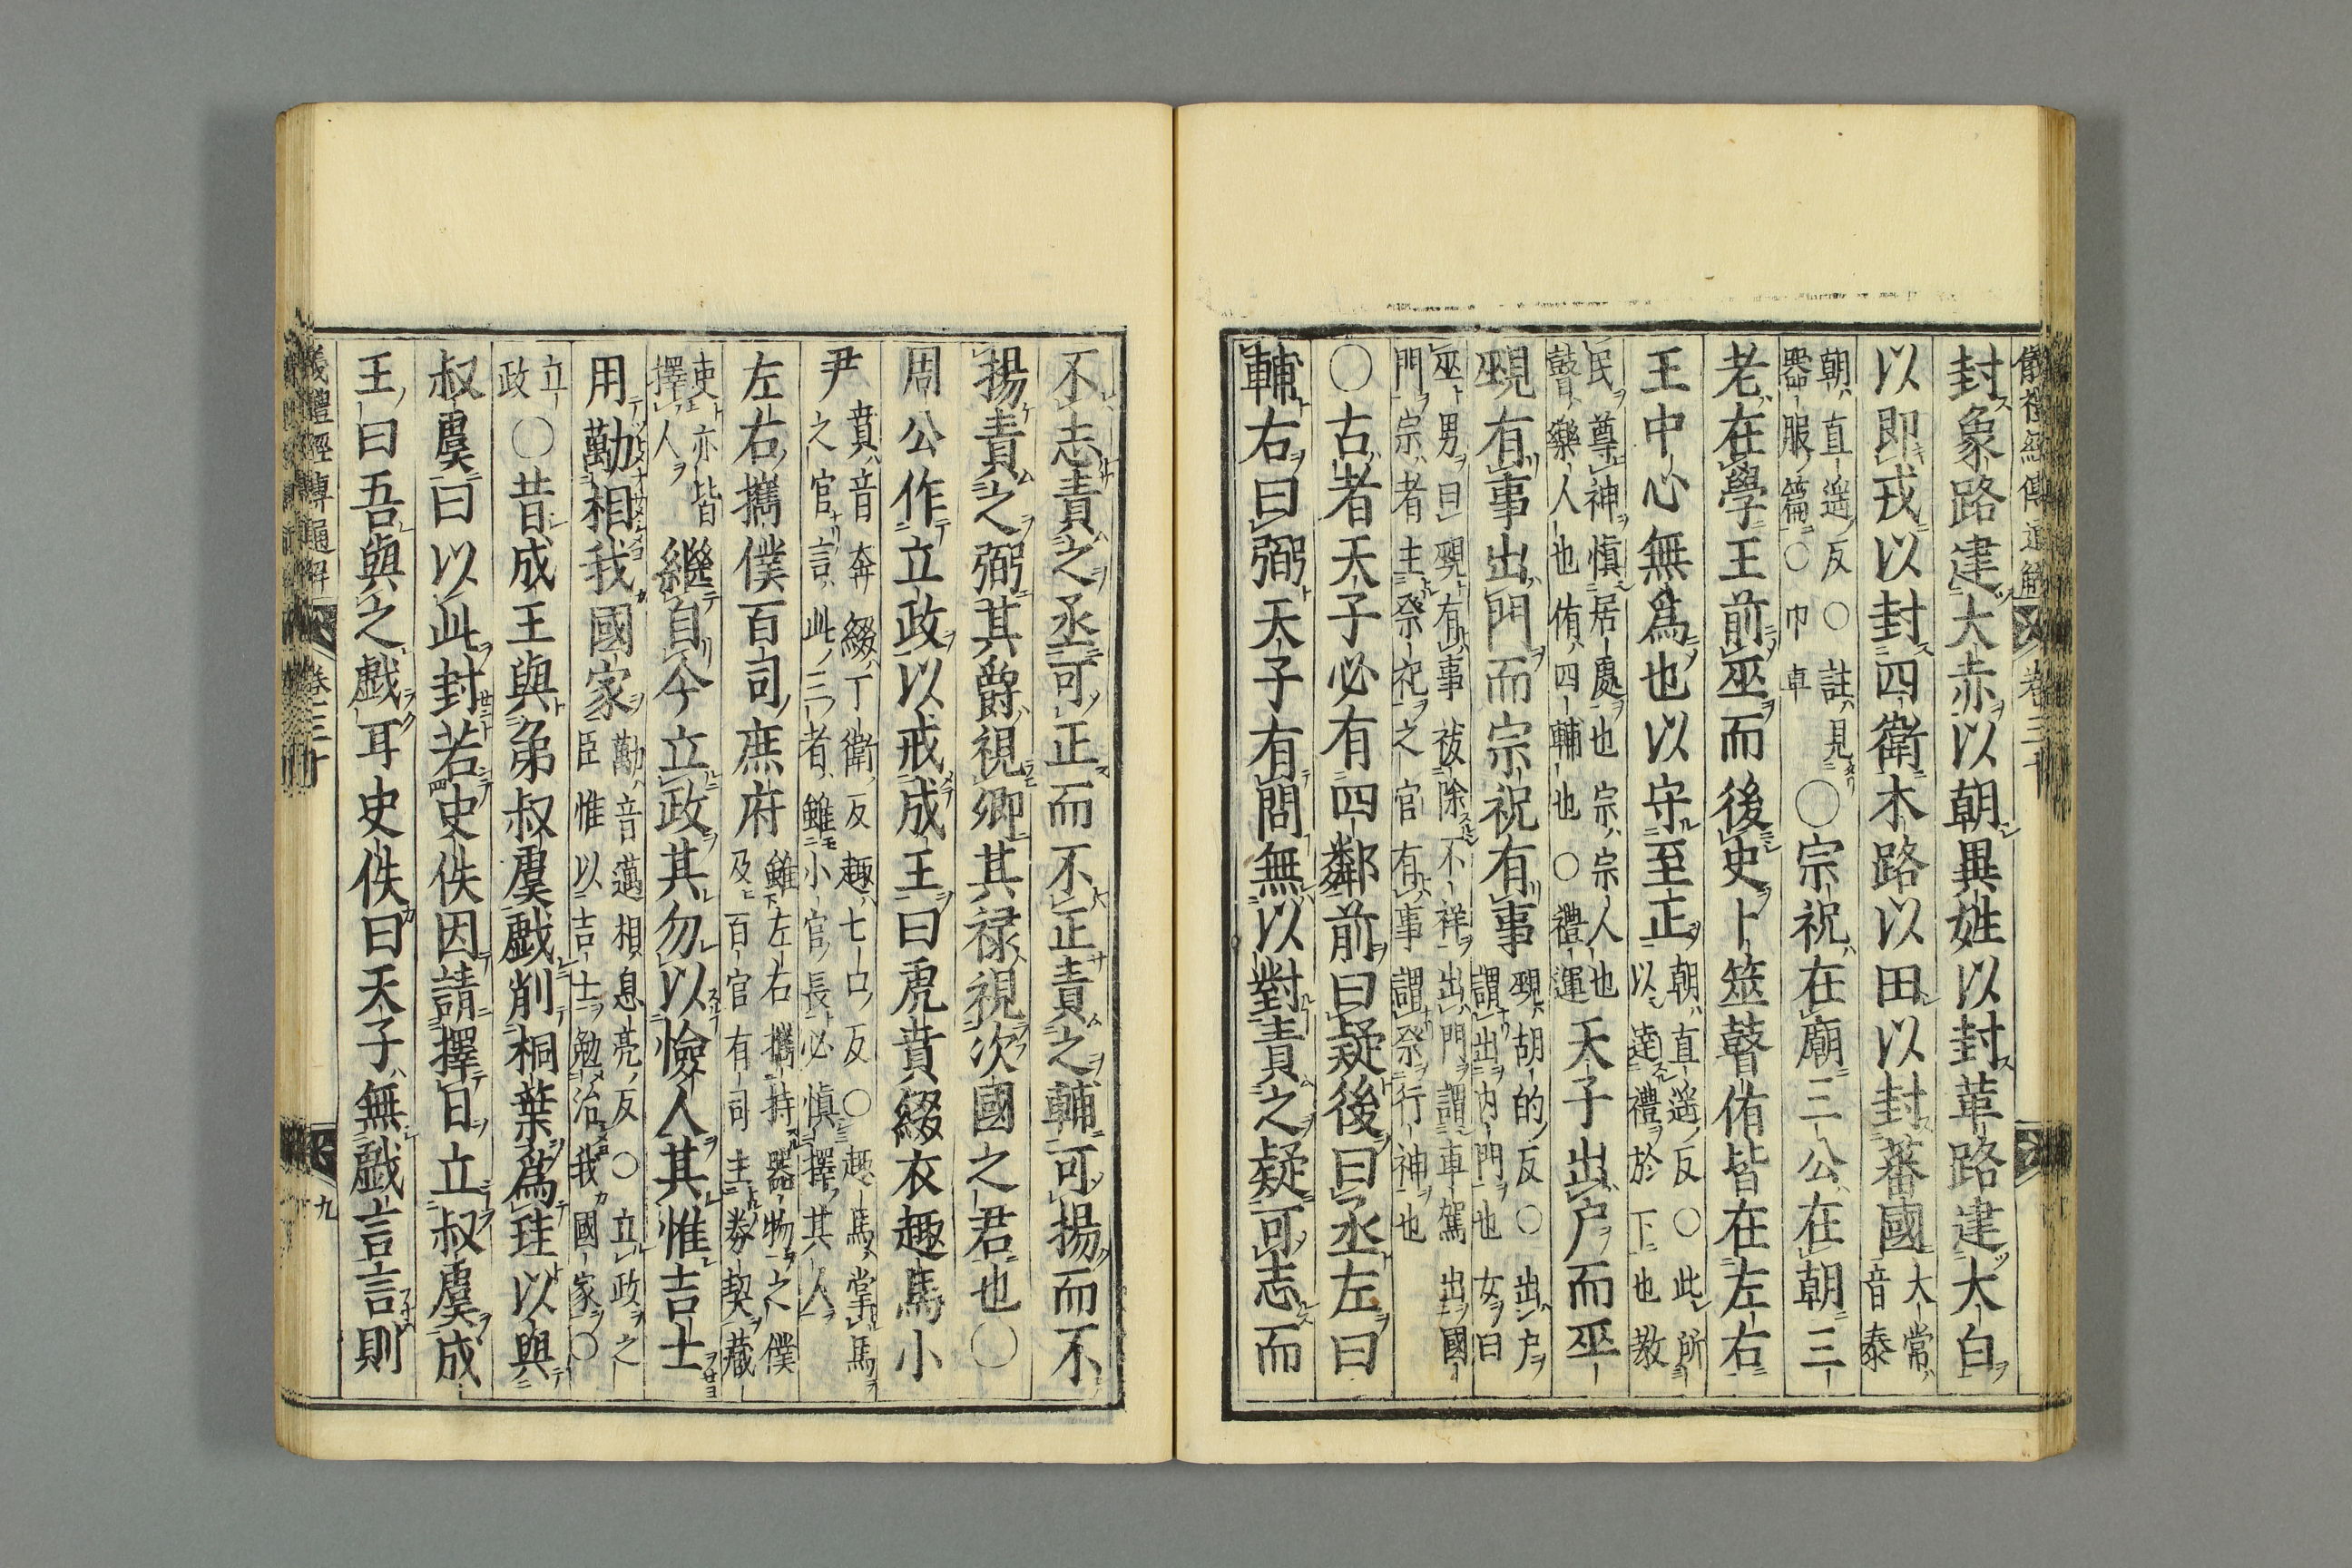 儀禮經傳通解 卷三十
封象路建大赤以朝異姓以封革路建大白
以即戎以封四衛木路以田以封蕃國大常音泰
朝直遥反○註見器服篇○巾車○宗祝在廟三公在朝三
老在學王前巫而後史卜筮瞽侑皆在左右
王中心無爲也以守至正朝直遥反○此所以達禮於下也教
民尊神慎居處也宗宗人也瞽樂人也侑四輔也○禮運天子出户而巫
覡有事出門而宗祝有事覡胡的反○出户謂出内門也女曰
巫男曰覡有事祓除不祥出門謂車駕出國門宗者主祭祀之官有事謂祭行神也
○古者天子必有四鄰前曰疑後曰丞左曰
輔右曰弼天子有問無以對責之疑可志而
不志責之丞可正而不正責之輔可揚而不
揚責之弼其爵視卿其禄視次國之君也○
周公作立政以戒成王曰虎賁綴衣趣馬小
尹賁音奔綴丁衛反趣七口反○趣馬掌馬之官言此三者雖小官長必慎擇其人
左右攜僕百司庶府雖左右攜持器物之僕及百官有司主券契藏
吏亦皆擇人繼自今立政其勿以憸人其惟吉士
用勱相我國家勱音邁相息亮反○立政之臣惟以吉士勉治我國家○
立政○昔成王與弟叔虞戲削桐葉爲珪以與
叔虞曰以此封若史佚因請擇日立叔虞成
王曰吾與之戲耳史佚曰天子無戲言言則
儀禮經傳通解 卷三十 九